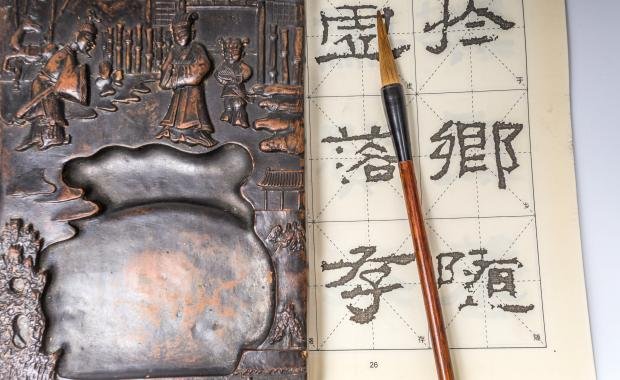 於鄉隨
虛落存
于
存
26